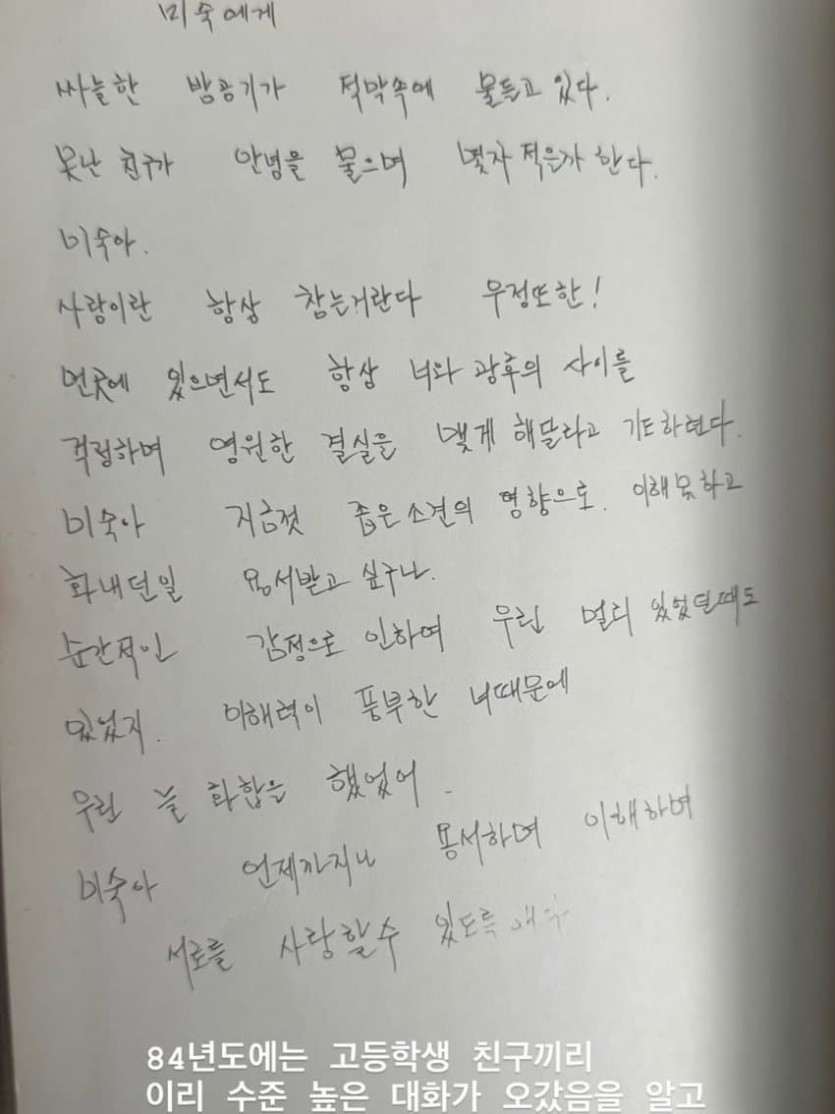 미숙에게
싸늘한 밤공기가 적막속에 물들고 있다.
못난 친구가 안녕을 물으며 몇자 적을까 한다.
미숙아.
사랑이란 항상 참는거란다 우정또한!
먼곳에 있으면서도 항상 너와 광후의 사이를
걱정하며 영원한 결실을 맺게 해달라고 기도하련다.
미숙아 지금껏 좁은 소견의 영향으로. 이해못하고
화내던일 용서받고 싶구나.
순간적인 감정으로 인하여 우린 멀리 있었던때도
있었지. 이해력이 풍부한 너때문에
우린 늘 화합을 했었어.
미숙아 언제까지나 용서하며 이해하며
서로를 사랑할수 있도록
84년도에는 고등학생 친구끼리
이리 수준 높은 대화가 오갔음을 알고